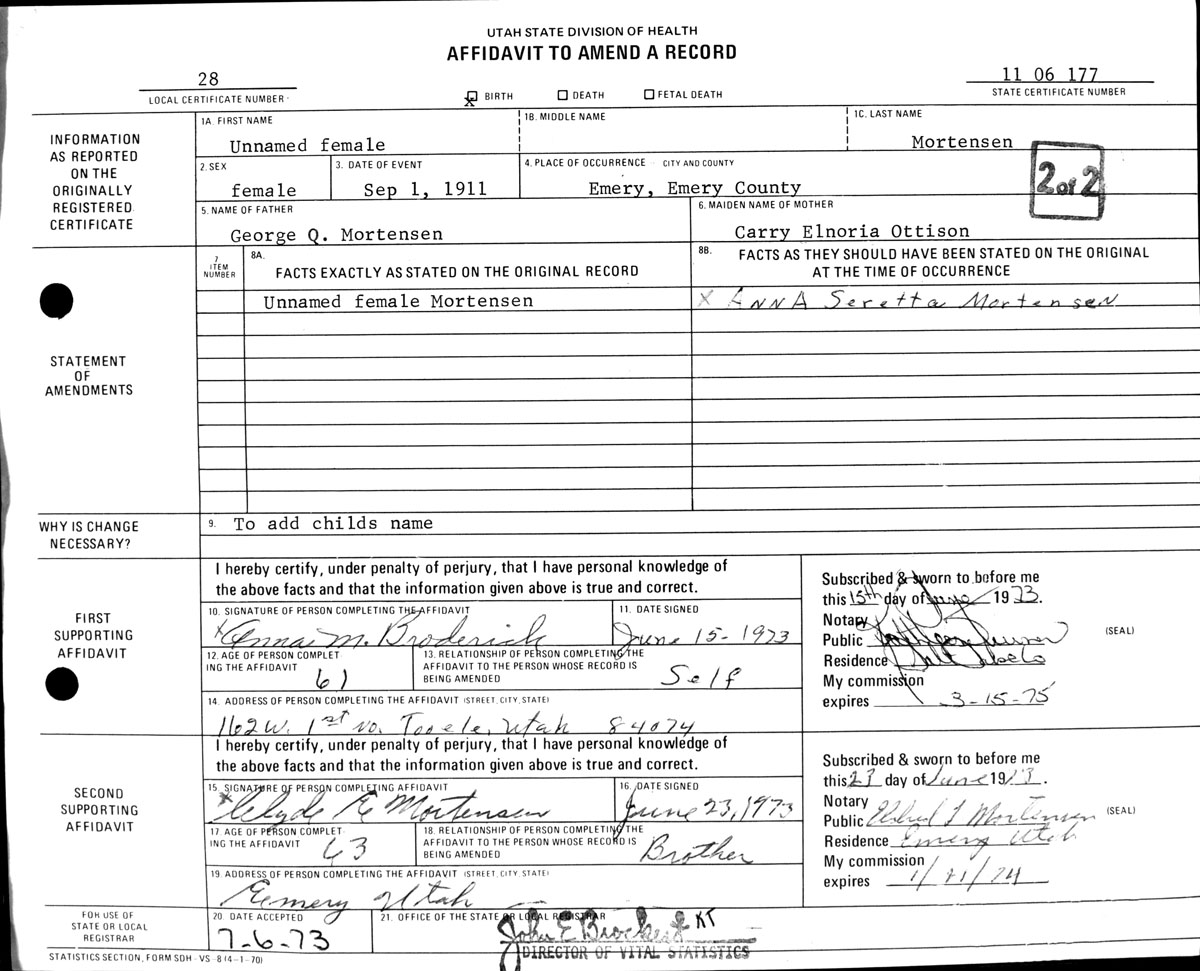 UTAH STATE DIVISION OF HEALTH
AFFIDAVIT TO AMEND A RECORD
28
LOCAL CERTIFICATE NUMBER
X BIRTH DEATH FETAL DEATH
11 06 177
STATE CERTIFICATE NUMBER
INFORMATION
AS REPORTED
ON THE
ORIGINALLY
REGISTERED
CERTIFICATE
1A. FIRST NAME
Unnamed female
1B. MIDDLE NAME
1C. LAST NAME
Mortensen
2 of 2
2. SEX
female
3. DATE OF EVENT
Sep 1, 1911
4. PLACE OF OCCURRENCE CITY AND COUNTY
Emery, Emery County
5. NAME OF FATHER
George Q. Mortensen
6. MAIDEN NAME OF MOTHER
Carry Elnoria Ottison
STATEMENT
OF
AMENDMENTS
7
ITEM
NUMBER
8A.
FACTS EXACTLY AS STATED ON THE ORIGINAL RECORD
8B. FACTS AS THEY SHOULD HAVE BEEN STATED ON THE ORIGINAL
AT THE TIME OF OCCURRENCE
Unnamed female Mortensen
X AnnA Seretta Mortensen
WHY IS CHANGE
NECESSARY?
9. To add childs name
FIRST
SUPPORTING
AFFIDAVIT
I hereby certify, under penalty of perjury, that I have personal knowledge of
the above facts and that the information given above is true and correct.
10. SIGNATURE OF PERSON COMPLETING THE AFFIDAVIT
X Anna M. Broderick
11. DATE SIGNED
June 15-1973
12. AGE OF PERSON COMPLET
ING THE AFFIDAVIT
61
13. RELATIONSHIP OF PERSON COMPLETING THE
AFFIDAVIT TO THE PERSON WHOSE RECORD IS
BEING AMENDED
Self
14. ADDRESS OF PERSON COMPLETING THE AFFIDAVIT (STREET, CITY, STATE)
162 W. 1st No. Tooele, Utah 84074
Subscribed & sworn to before me
this 15th day of June 1973.
Notary
Public
(SEAL)
Residence
My commission
expires 3-15-75
SECOND
SUPPORTING
AFFIDAVIT
I hereby certify, under penalty of perjury, that I have personal knowledge of
the above facts and that the information given above is true and correct.
15. SIGNATURE OF PERSON COMPLETING AFFIDAVIT
X Clyde E Mortensen
16. DATE SIGNED
June 23, 1973
17. AGE OF PERSON COMPLET
ING THE AFFIDAVIT
63
18. RELATIONSHIP OF PERSON COMPLETING THE
AFFIDAVIT TO THE PERSON WHOSE RECORD IS
BEING AMENDED
Brother
19. ADDRESS OF PERSON COMPLETING THE AFFIDAVIT (STREET, CITY, STATE)
Emery Utah
Subscribed & sworn to before me
this 23 day of June 1973.
Notary
Public Mortensen
(SEAL)
Residence Emery Utah
My commission
expires
FOR USE OF
STATE OR LOCAL
REGISTRAR
20. DATE ACCEPTED
7-6-73
21. OFFICE OF THE STATE OR LOCAL REGISTRAR
John E Brockert KT
DIRECTOR OF VITAL STATISTICS
STATISTICS SECTION, FORM SDH-VS-8 (4-1-70)